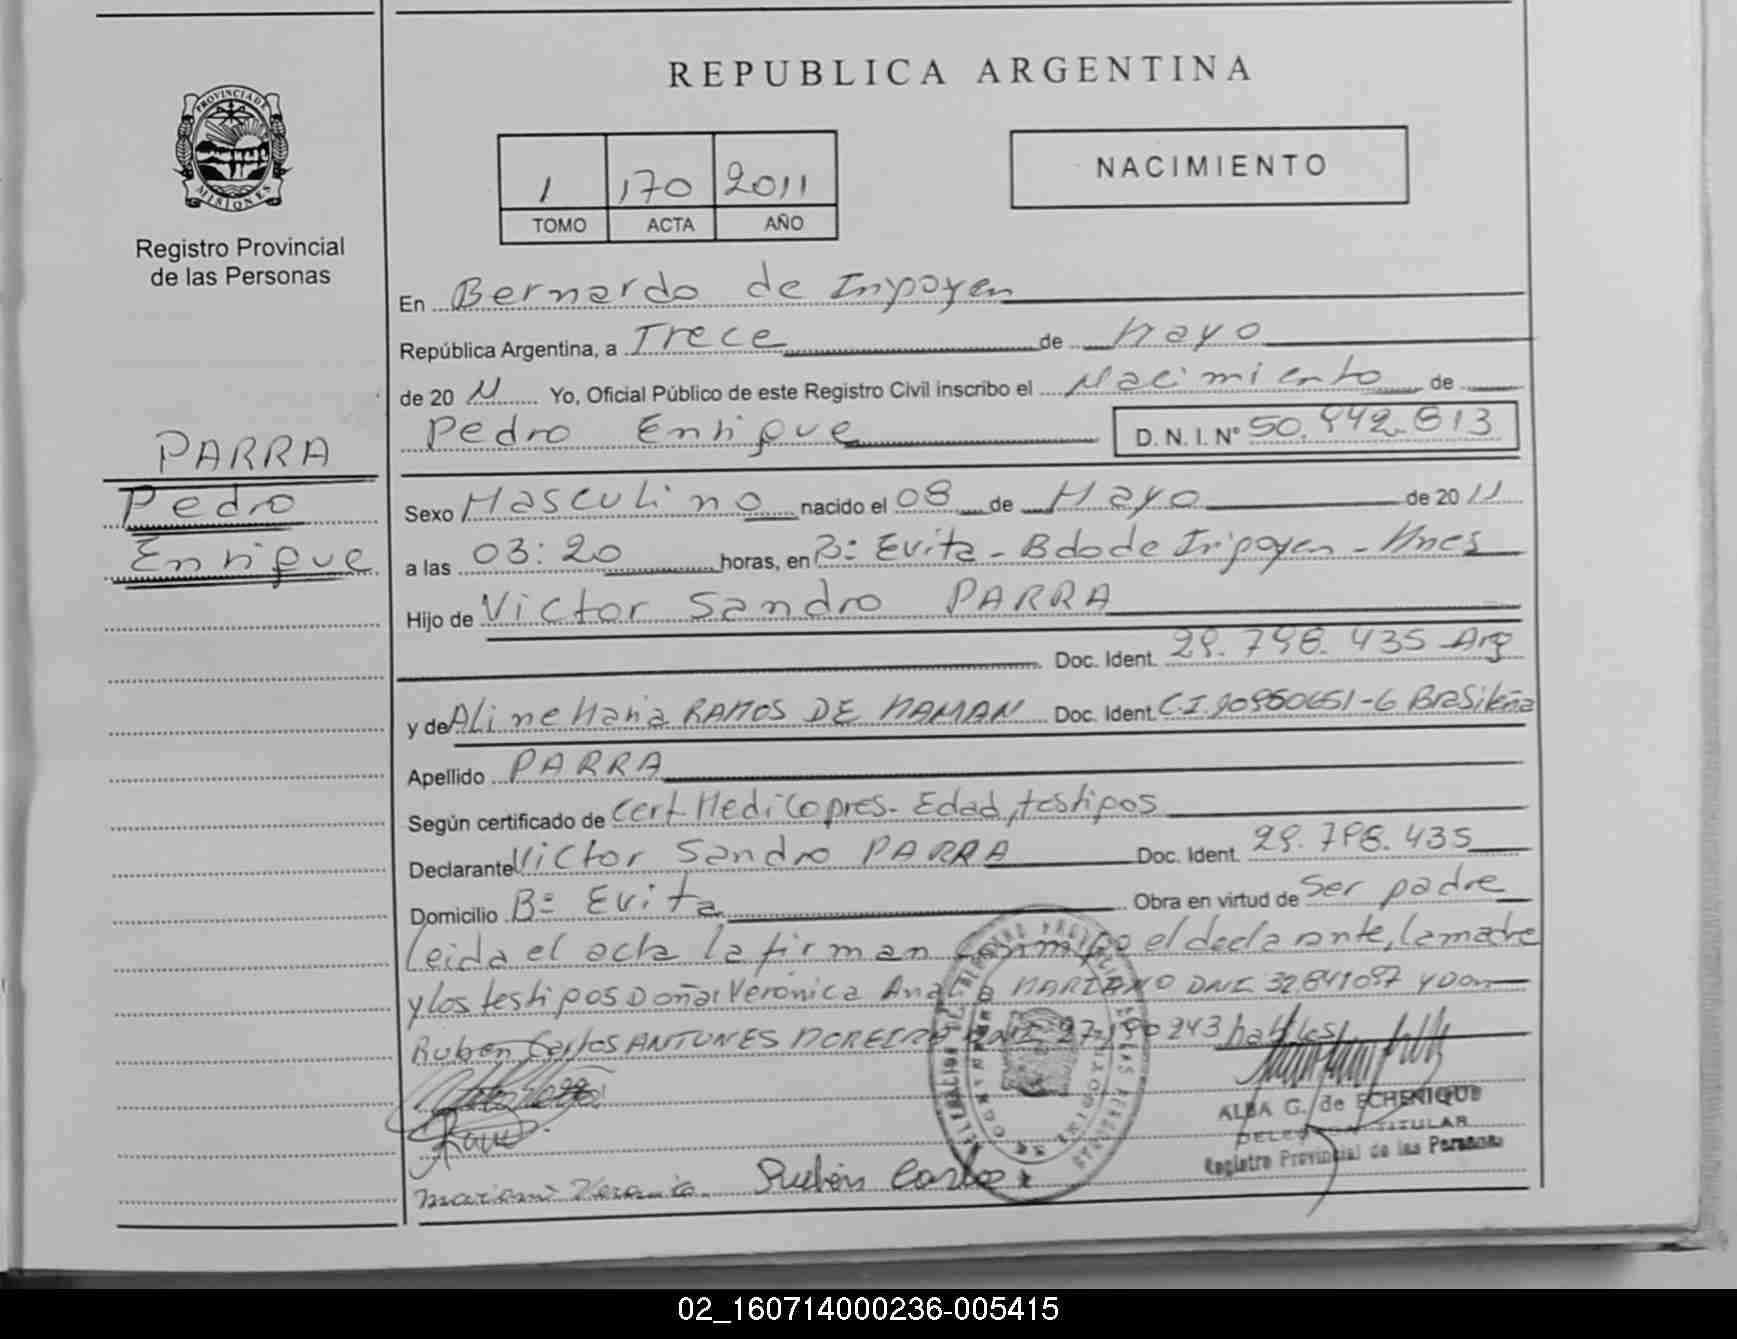 REPUBLICA ARGENTINA
PROVINCIA DE
MISIONES
Registro Provincial
de las Personas
1 170 2011
TOMO ACTA AÑO
NACIMIENTO
En Bernardo de Irigoyen
República Argentina, a Trece de Mayo
de 20 11 Yo, Oficial Público de este Registro Civil inscribo el Nacimiento de
Pedro Enrique D. N. I. Nº 50.942.813
PARRA
Pedro
Enrique
Sexo Masculino nacido el 08 de Mayo de 20 11
a las 03:20 horas, en Bº Evita - Bdo de Irigoyen - Mnes
Hijo de Victor Sandro PARRA
Doc. Ident. 29.798.435 Arg
y de Aline Maria RAMOS DE MAMAN Doc. Ident. C.I. Brasileña
Apellido PARRA
Según certificado de Cert Medico pres. Edad, testigos
Declarante Victor Sandro PARRA Doc. Ident. 29.798.435
Domicilio Bº Evita Obra en virtud de Ser padre
Leida el acta la firman conmigo el declarante, la madre
y los testigos Doña: Veronica MARIANO DNI 32841087 y Don
Ruben Carlos ANTUNES MOREIRA DNI 27190243
ALBA G. de ECHENIQUE
DELEGADA TITULAR
Registro Provincial de las Personas
Rubén Carlos
02_160714000236-005415